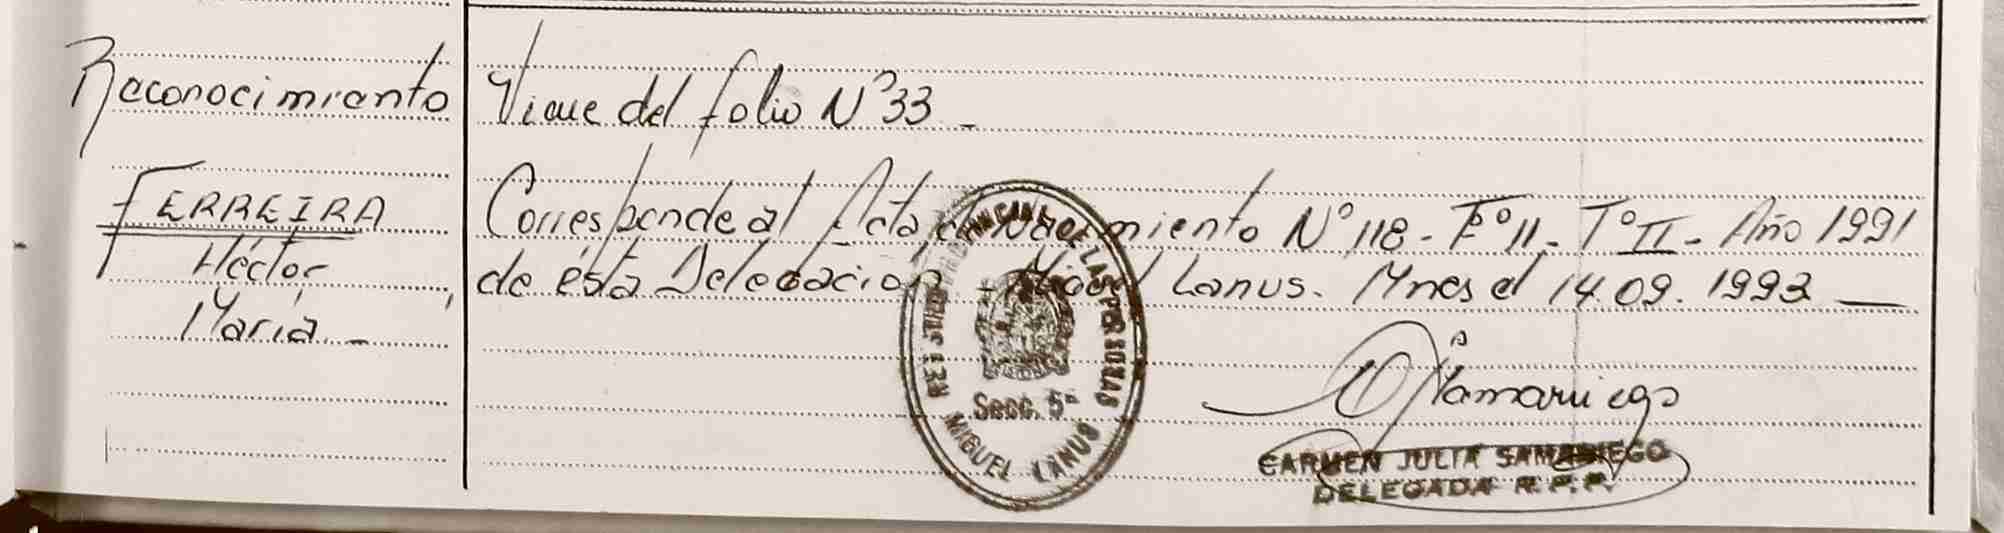 Reconocimiento
FERREIRA
Héctor
María.-
Viene del folio N° 33 -
Corresponde al Acta de Nacimiento N° 118 - F° 11 - T° II - Año 1991
de ésta Delegación - Miguel Lanus. Mnes el 14.09.1992 —
PROVINCIAL DE LAS PERSONAS
Secc. 5ª
MIGUEL LANUS
CJSamaniego
CARMEN JULIA SAMANIEGO
DELEGADA R.P.P.